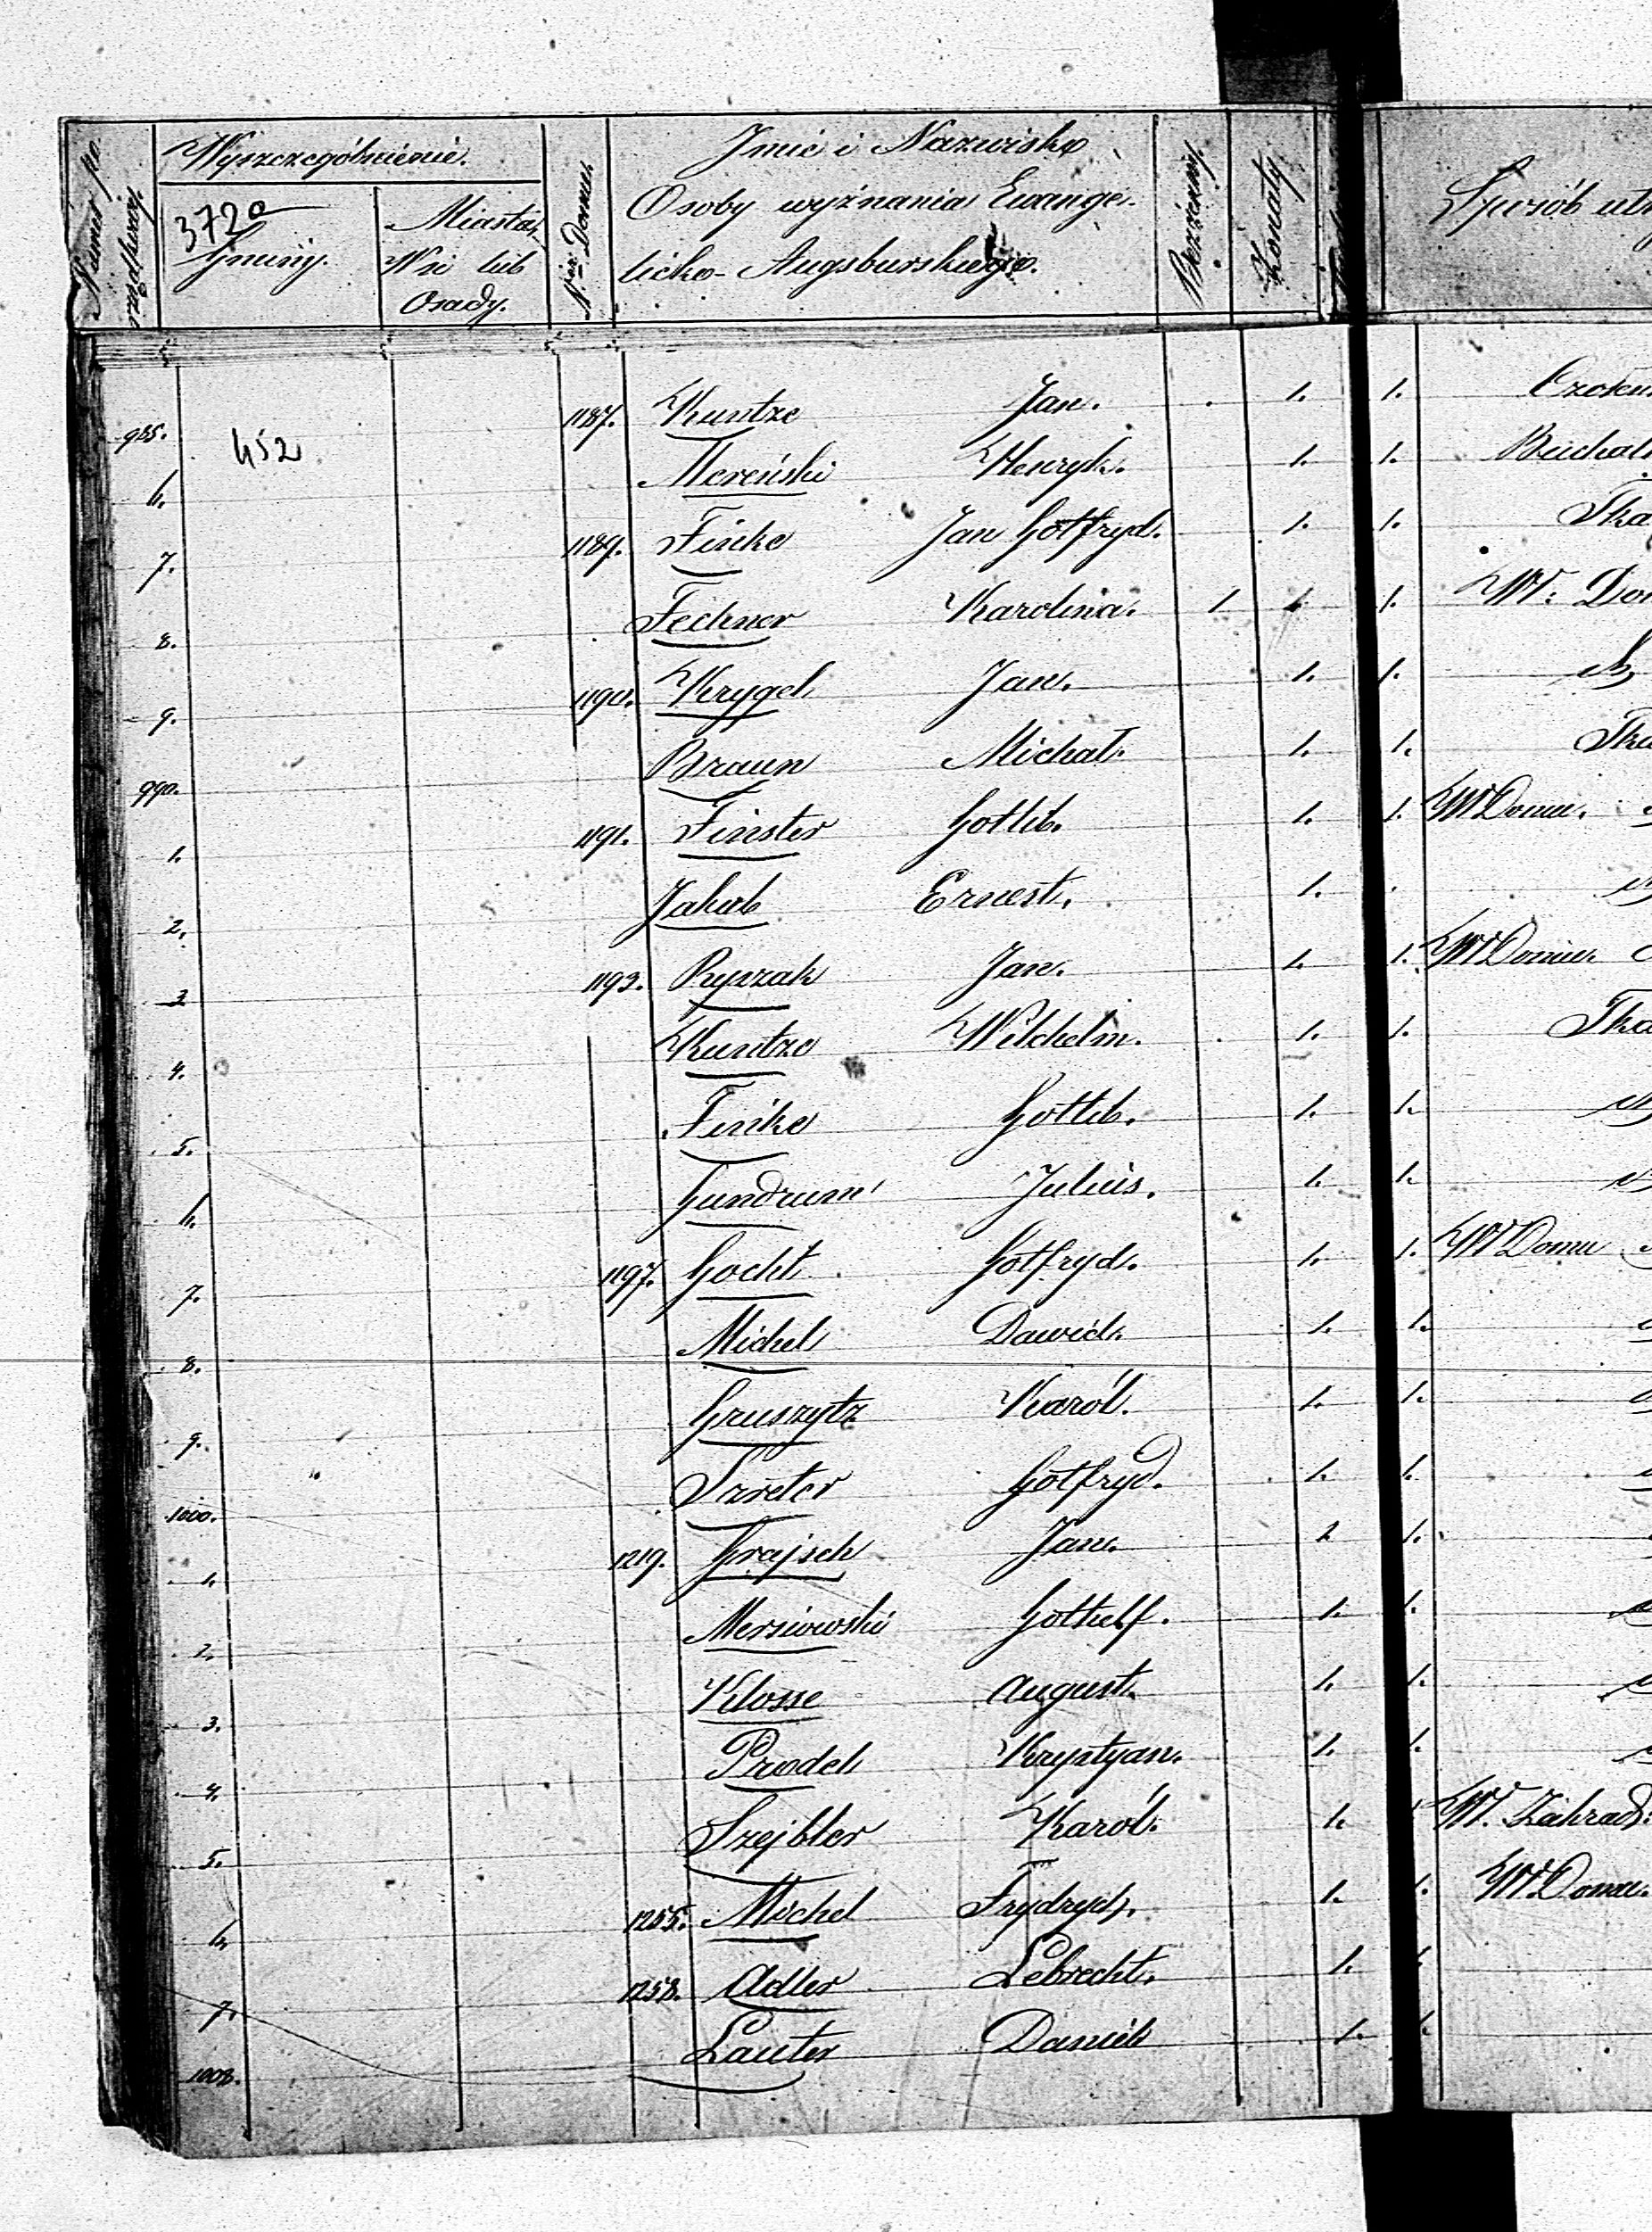 Numer po rządkowy
Wyszczególnienie.
372a
Gminy.
Miasta,
Wsi lub
Osady.
Nr Domu.
Imie i Nazwisko
Osoby wyznania Ewange-
licko-Augsburskiego.
Bezżenny.
Żonaty
Sposób
985. 452 1187. Kuntze Jan. 1. 1.
6. Mereński Henryk. 1. 1.
7. 1189. Finke Jan Gotfryd. 1. 1.
8. Fechner Karolina. 1 1. 1. W: Dom
9. 1190. Krygel Jan. 1. 1.
990. Braun Michał. 1. 1.
1. 1191. Finster Gotlib. 1. 1. W Domu.
2. Jakub Ernest. 1.
3 1192. Ryszak Jan. 1. 1. W Domu
4. Kuntze Wilchelm. 1. 1.
5. Finke Gotlib. 1. 1.
6. Gundrum Julius. 1. 1.
7. 1197. Gocht Gotfryd. 1. 1. W Domu
8. Michel Dawid. 1. 1.
9. Gruszytz Karól. 1. 1.
1000. Szreter Gotfryd. 1. 1.
1. 1219. Grajsch Jan. 1. 1.
2. Mersiowski Gothelf. 1. 1.
3. Klosse August. 1. 1.
4. Prodel Krystyan. 1. 1.
5. Szejbler Karól. 1. W.
6. 1255. Michel Frydrych. 1. 1. W Domu.
7. 1258. Adler Lebrecht. 1. 1.
1008. Lauter Daniel 1. 1.